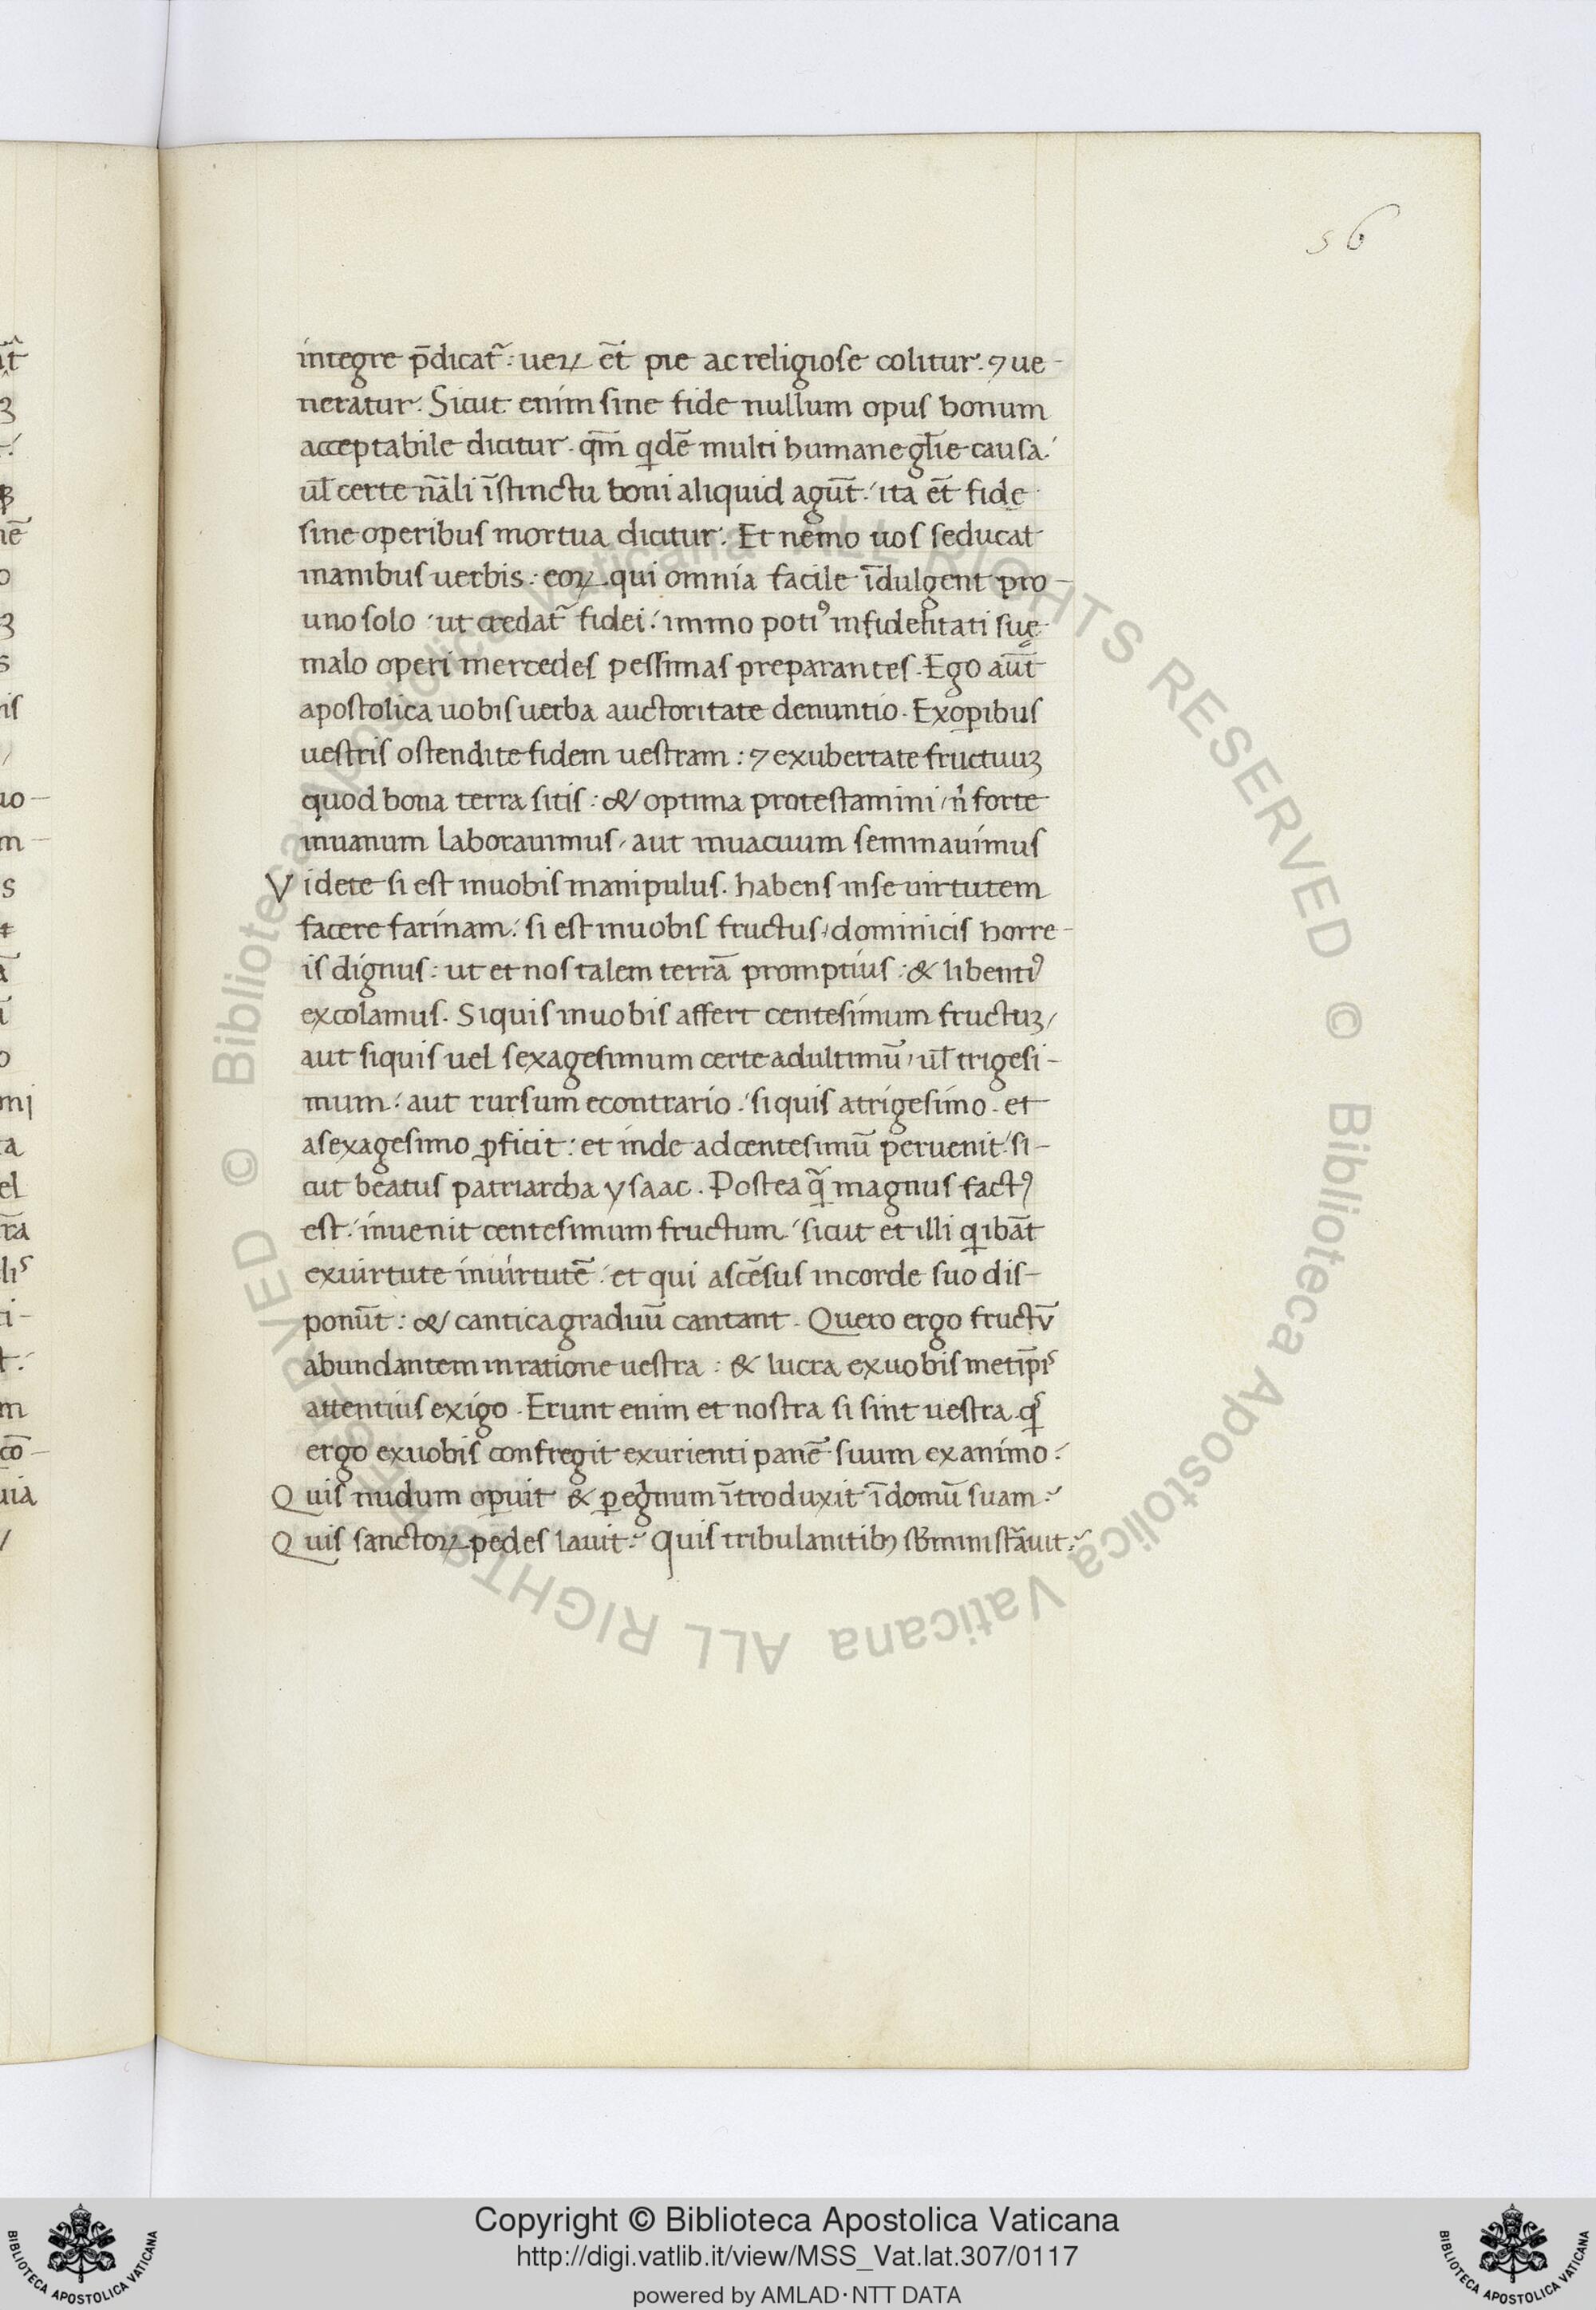 56
integre p̄dicat᷑ : ueꝝ et̄ pie ac religiose colitur. ⁊ ue-
neratur. Sicut enim sine fide nullum opus bonum
acceptabile dicitur. qm̄ qdē multi humane gl̄ie causa.
ul̄ certe nāli īstinctu boni aliquid agūt. ita et̄ fide
sine operibus mortua dicitur. Et nemo uos seducat
inanibus uerbis : eoꝝ qui omnia facile īdulgent pro-
uno solo ut credat᷑ fidei. immo potiꝰ infidelitati suę
malo operi mercedes pessimas preparantes. Ego aūt
apostolica uobis uerba auctoritate denuntio. Ex oꝑibus
uestris ostendite fidem uestram : ⁊ exubertate fructuuꝫ
quod bona terra sitis : & optima protestamini / n̄ forte
inuanum laborauimus, aut inuacuum seminauimus
Videte si est inuobis manipulus. habens inse uirtutem
facere farinam. si est inuobis fructus, dominicis horre-
is dignus : ut et nos talem terrā promptius : & libentiꝰ
excolamus. Siquis inuobis affert centesimum fructuꝫ,
aut siquis uel sexagesimum certe adultimū, ul̄ trigesi-
mum. aut rursum econtrario. siquis atrigesimo. et
asexagesimo ꝓficit : et inde adcentesimū peruenit. si-
cut beatus patriarcha ysaac. Postea q̄ magnus factꝰ
est. inuenit centesimum fructum. sicut et illi qibāt
exuirtute inuirtutē. et qui ascēsus incorde suo dis-
ponūt : & cantica graduū cantant. Quero ergo fructū
abundantem inratione uestra : & lucra exuobis metip̄is
attentius exigo. Erunt enim et nostra si sint uestra. qs
ergo exuobis confregit exurienti panē suum exanimo.
Quis nudum oꝑuit & ꝑegnum ītroduxit īdomū suam.
Quis sanctoꝝ pedes lauit. Quis tribulanitibꝫ sb̄ministrauit.
Copyright © Biblioteca Apostolica Vaticana
http://digi.vatlib.it/view/MSS_Vat.lat.307/0117
powered by AMLAD·NTT DATA